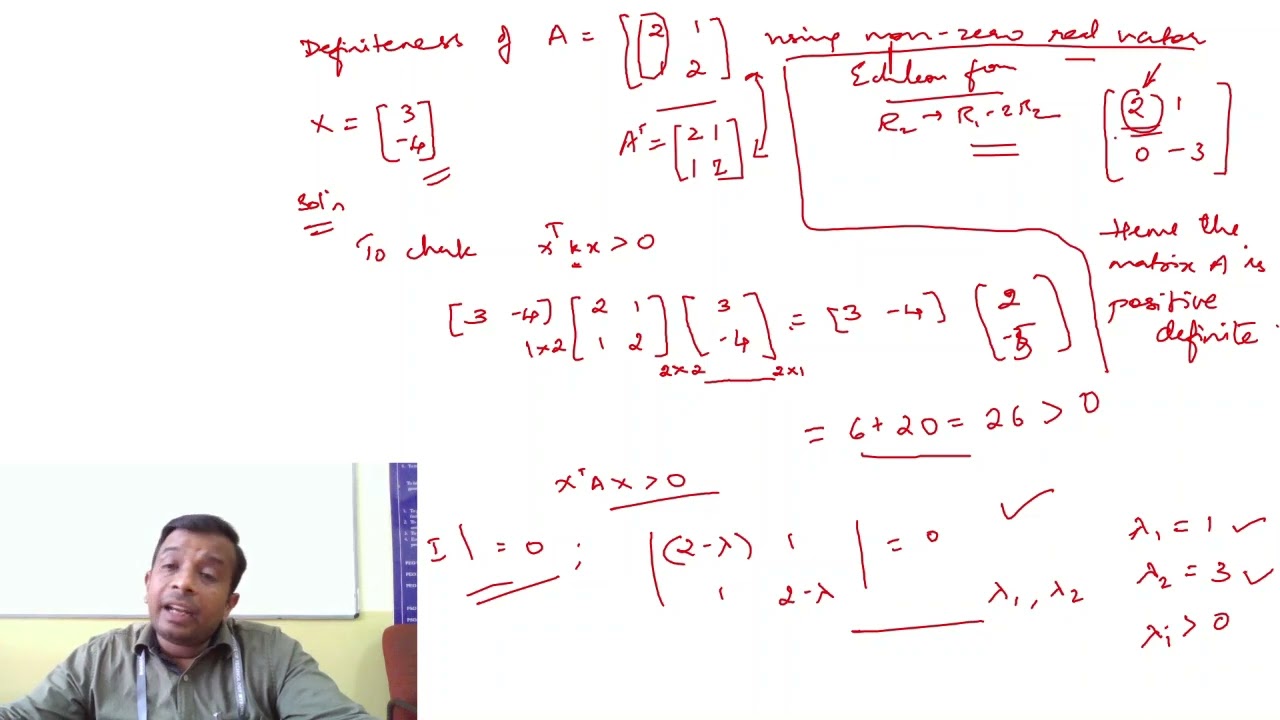 Definiteness of A = [2 1 1 2] using non-zero real vector
X = [3 -4]
Aᵀ = [2 1 1 2]
Echelon form
R₂ → R₁ - 2R₂
[2 1 0 -3]
Soln
To check xᵀ k x > 0
Hence the
matrix A is
positive
definite
[3 -4] 1×2 [2 1 1 2] 2×2 [3 -4] 2×1 = [3 -4] (2 -5)
= 6 + 20 = 26 > 0
xᵀ A x > 0
I | = 0 ; | (2-λ) 1 1 2-λ | = 0
λ₁, λ₂
λ₁ = 1 ✓
λ₂ = 3 ✓
λᵢ > 0